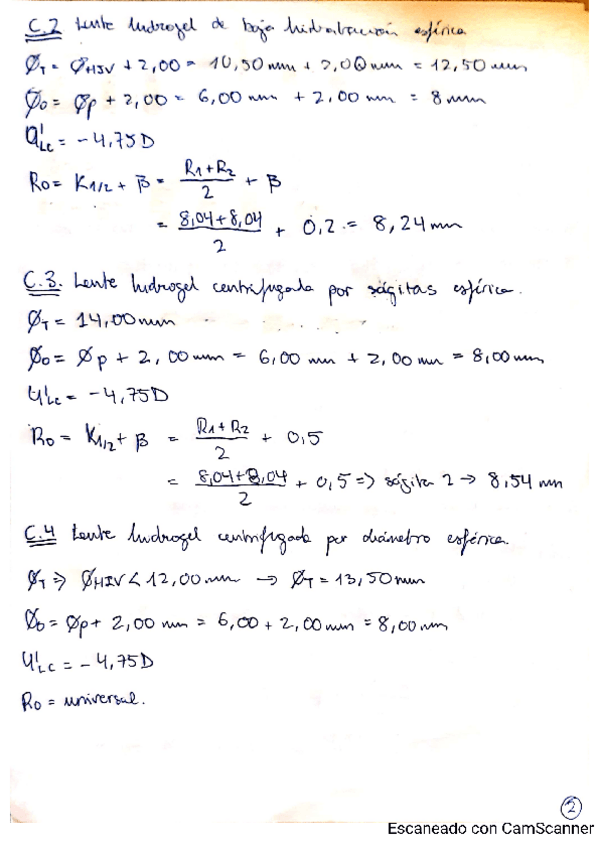 C.2 Lente hidrogel de baja hidratación esférica
ØT = ØHIV + 2,00 = 10,50 mm + 2,00 mm = 12,50 mm
Øo = Øp + 2,00 = 6,00 mm + 2,00 mm = 8 mm
U'LC = -4,75D
Ro = K1/2 + β = (R1+R2)/2 + β
= (8,04+8,04)/2 + 0,2 = 8,24 mm
C.3. Lente hidrogel centrifugada por ságitas esférica.
ØT = 14,00 mm
Øo = Øp + 2,00 mm = 6,00 mm + 2,00 mm = 8,00 mm
U'LC = -4,75D
Ro = K1/2 + β = (R1+R2)/2 + 0,5
= (8,04+8,04)/2 + 0,5 => ságita 2 → 8,54 mm
C.4 Lente hidrogel centrifugada por diámetro esférica.
ØT => ØHIV < 12,00 mm → ØT = 13,50 mm
Øo = Øp + 2,00 mm = 6,00 + 2,00 mm = 8,00 mm
U'LC = -4,75D
Ro = universal.
2
Escaneado con CamScanner